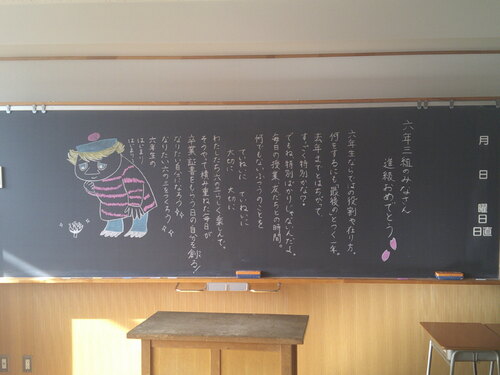 月　日　曜日
日直
六年三組のみなさん
進級おめでとう
六年生ならではの役割や在り方。
何をするにも「最後の」とつく一年。
去年までとはちがって
すごく特別かな？
でもね特別ばかりじゃないんだよ。
毎日の授業、友だちとの時間、
何でもないふつうのことを
ていねいに　ていねいに
大切に　大切に
わたしたち六の三らしく楽しんで。
そうやって積み重ねた毎日が
卒業証書をもらう日の自分を創る！
なりたい自分になろう
なりたい六の三をつくろう
六年生の
はじまり
はじまり